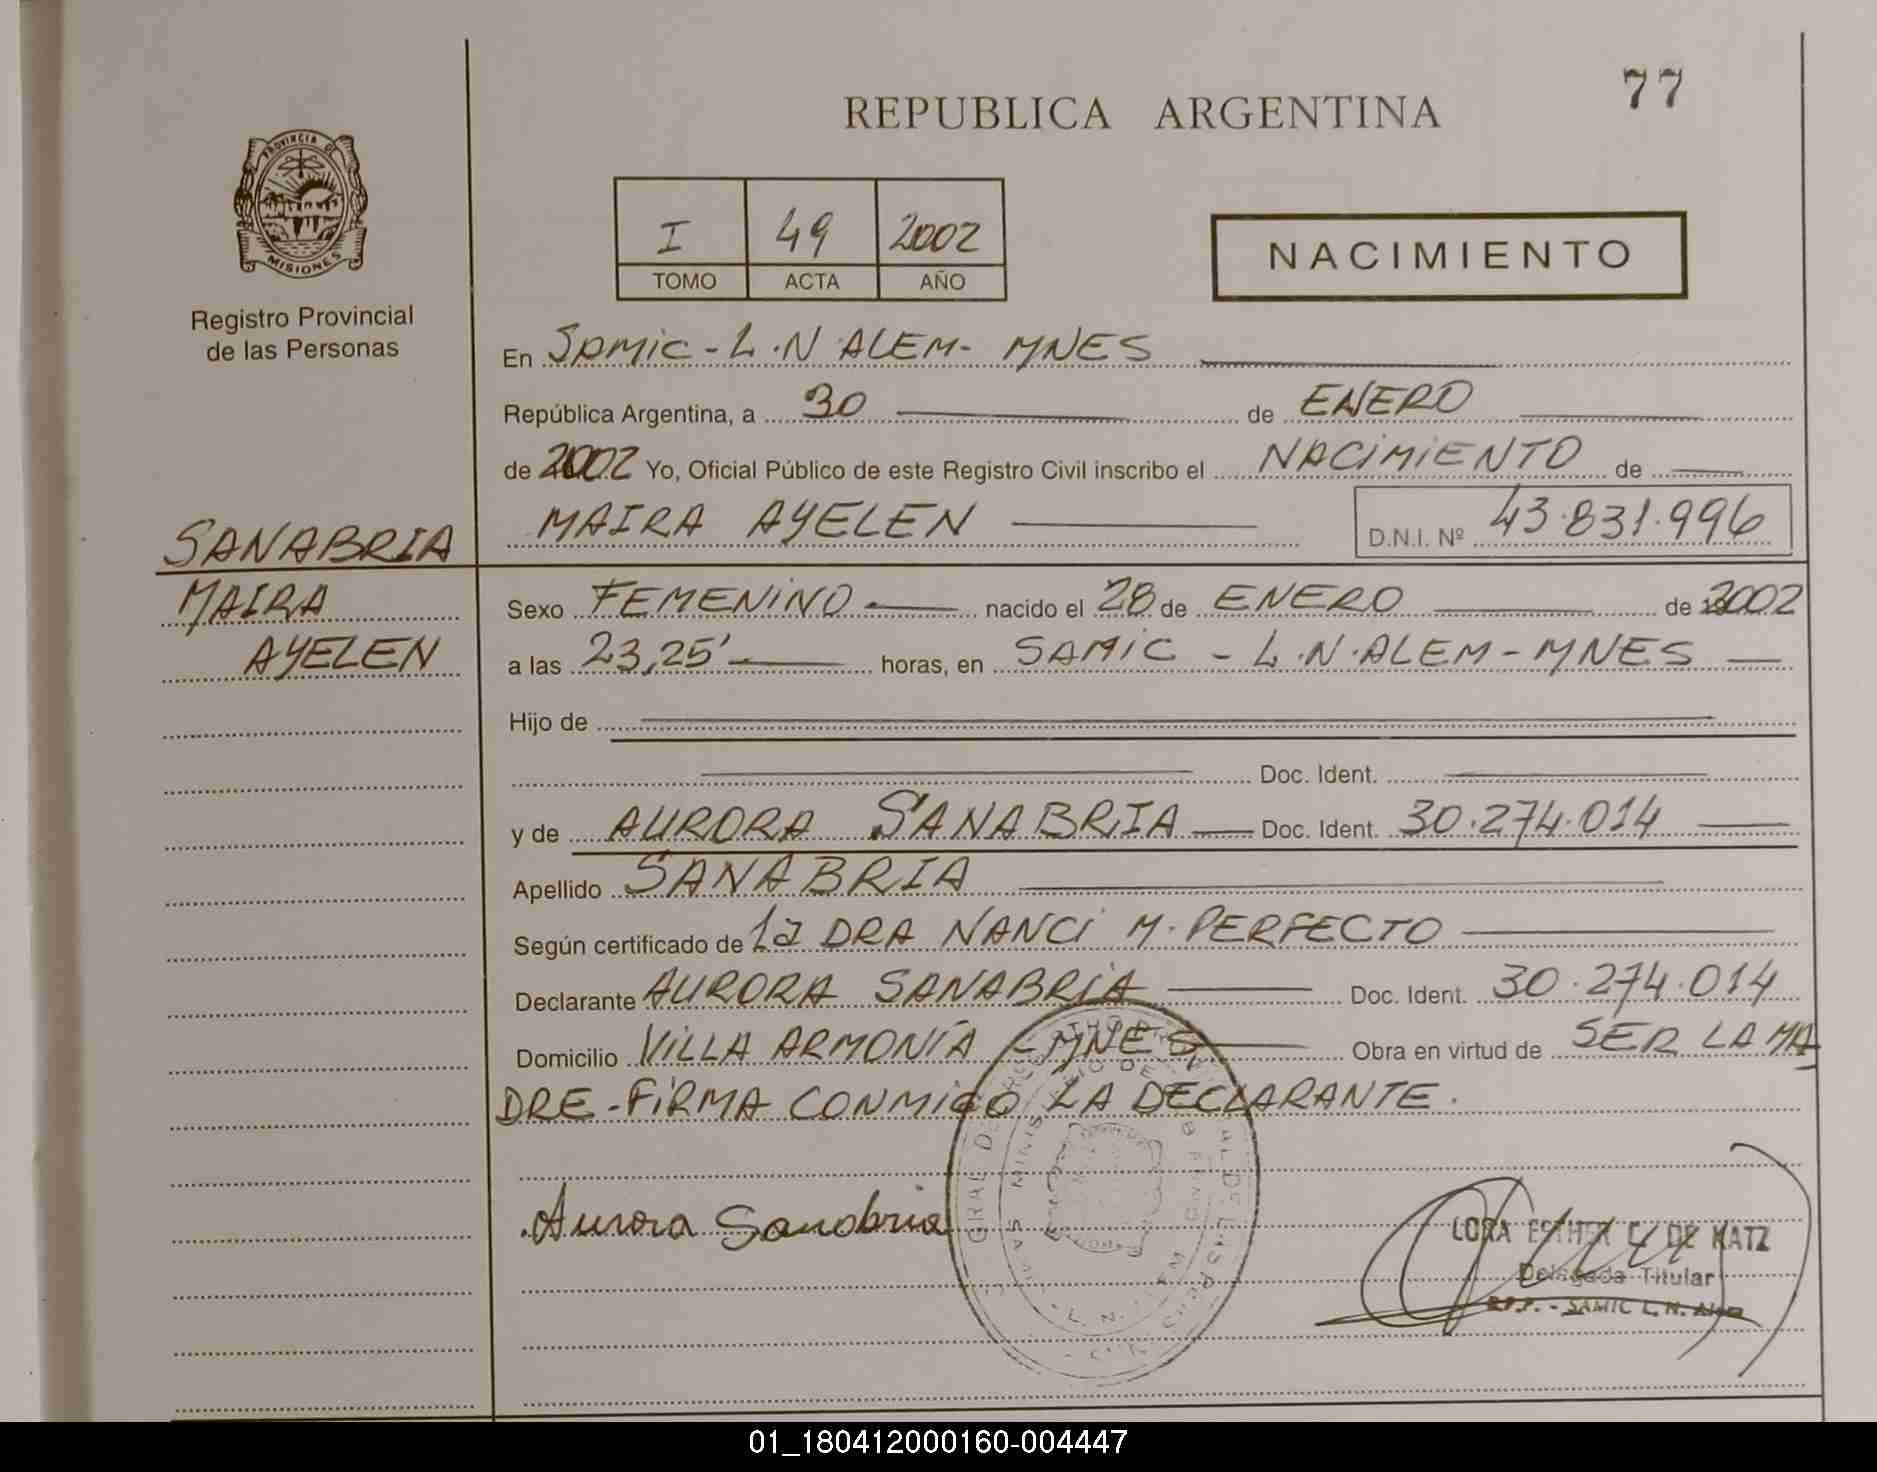 77
REPUBLICA ARGENTINA
PROVINCIA DE
MISIONES
Registro Provincial
de las Personas
I 49 2002
TOMO ACTA AÑO
NACIMIENTO
En SAMIC - L.N. ALEM - MNES
República Argentina, a 30 de ENERO
de 2002 Yo, Oficial Público de este Registro Civil inscribo el NACIMIENTO de
MAIRA AYELEN D.N.I. Nº 43.831.996
SANABRIA
MAIRA
AYELEN
Sexo FEMENINO nacido el 28 de ENERO de 2002
a las 23,25' horas, en SAMIC - L.N. ALEM - MNES
Hijo de
Doc. Ident.
y de AURORA SANABRIA Doc. Ident. 30.274.014
Apellido SANABRIA
Según certificado de la DRA NANCI M. PERFECTO
Declarante AURORA SANABRIA Doc. Ident. 30.274.014
Domicilio VILLA ARMONÍA - MNES Obra en virtud de SER LA MA
DRE - FIRMA CONMIGO LA DECLARANTE.
Aurora Sanabria
ESTHER DE KATZ
Delegada Titular
R.P.P. - SAMIC L. N. Alem
01_180412000160-004447